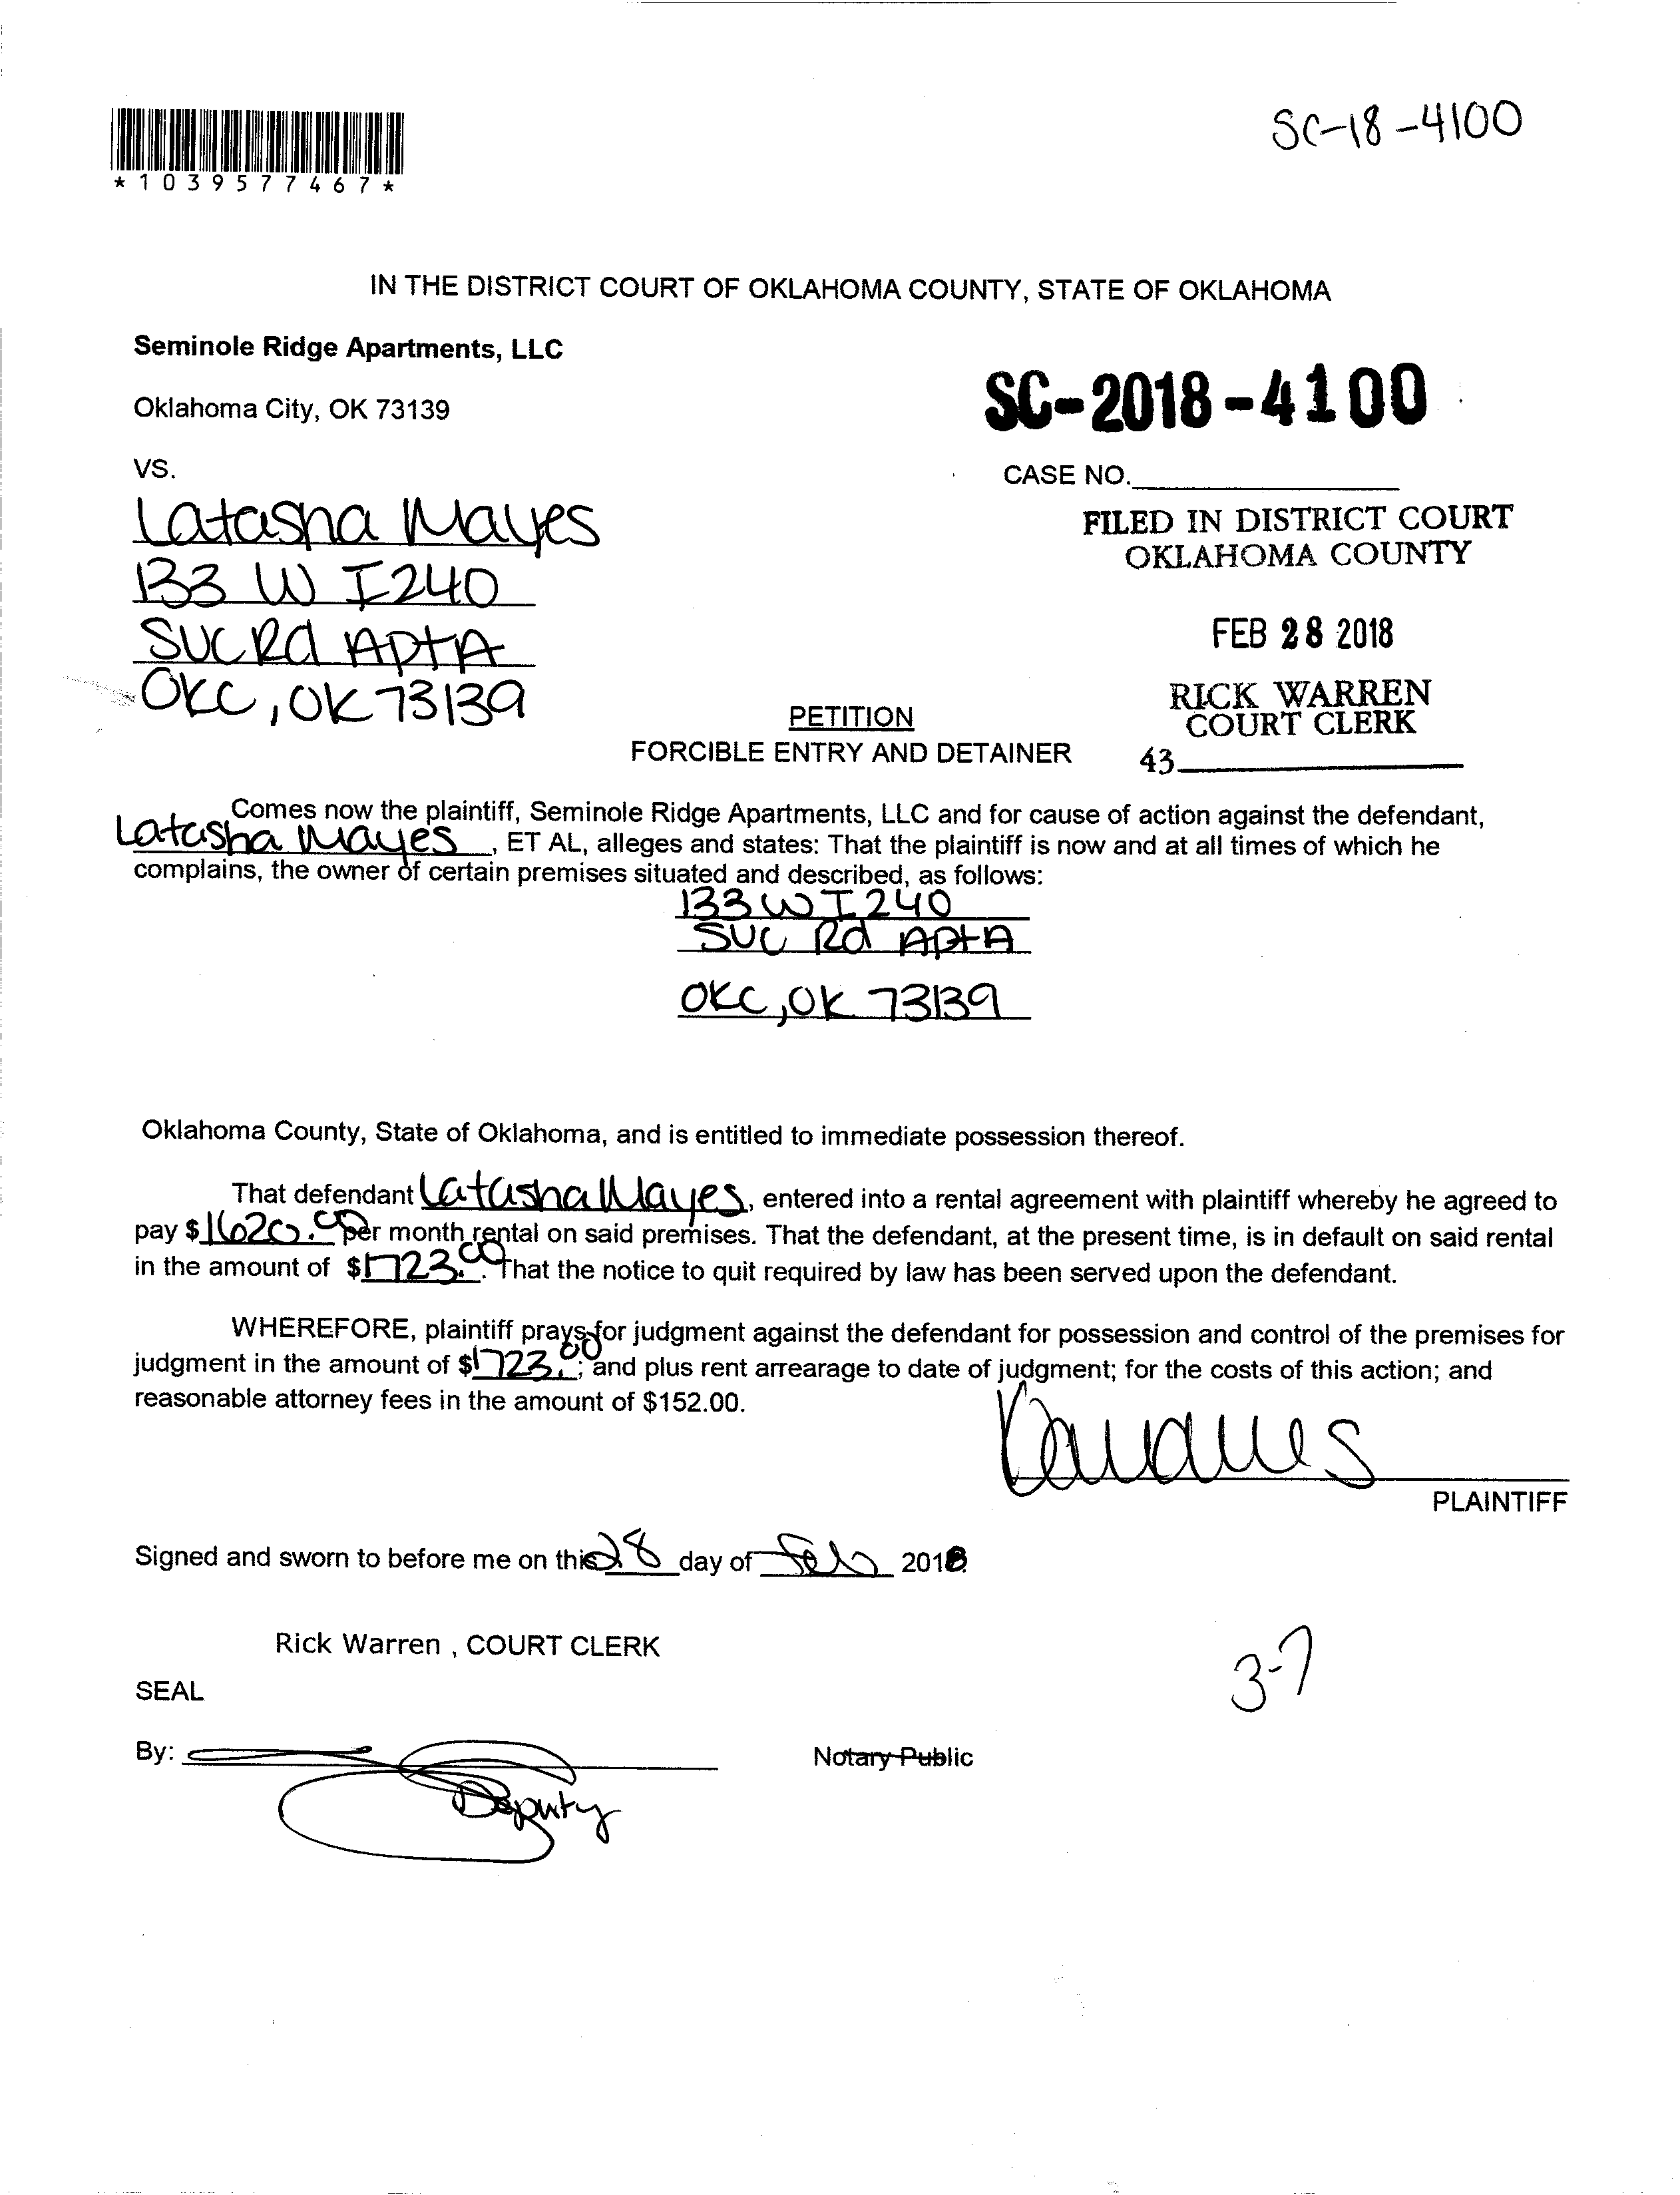 SC-18-4100
*1039577467*
IN THE DISTRICT COURT OF OKLAHOMA COUNTY, STATE OF OKLAHOMA
Seminole Ridge Apartments, LLC
Oklahoma City, OK 73139
SC-2018-4100
VS.
CASE NO.
Latasha Mayes
FILED IN DISTRICT COURT
OKLAHOMA COUNTY
133 W I240
FEB 28 2018
SVC Rd Apt A
OKC, OK 73139
RICK WARREN
COURT CLERK
PETITION
FORCIBLE ENTRY AND DETAINER
43
Comes now the plaintiff, Seminole Ridge Apartments, LLC and for cause of action against the defendant,
Latasha Mayes, ET AL, alleges and states: That the plaintiff is now and at all times of which he
complains, the owner of certain premises situated and described, as follows:
133 W I240
SVC Rd Apt A
OKC, OK 73139
Oklahoma County, State of Oklahoma, and is entitled to immediate possession thereof.
That defendant Latasha Mayes, entered into a rental agreement with plaintiff whereby he agreed to
pay $1620.00 per month rental on said premises. That the defendant, at the present time, is in default on said rental
in the amount of $1723.00. That the notice to quit required by law has been served upon the defendant.
WHEREFORE, plaintiff prays for judgment against the defendant for possession and control of the premises for
judgment in the amount of $1723.00; and plus rent arrearage to date of judgment; for the costs of this action; and
reasonable attorney fees in the amount of $152.00.
PLAINTIFF
Signed and sworn to before me on this 28 day of Feb 2018
Rick Warren , COURT CLERK
3-7
SEAL
By:
Notary Public
Deputy